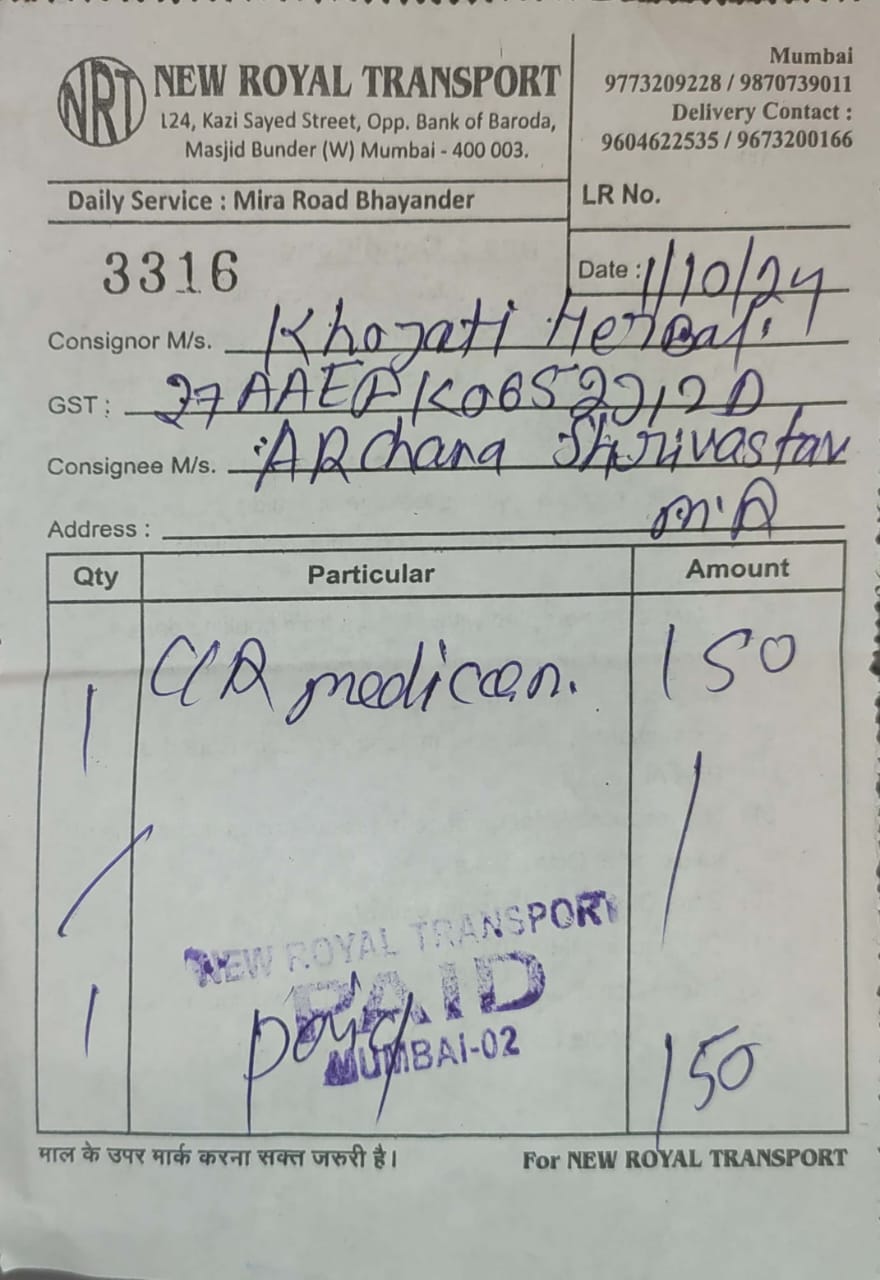 NRT
NEW ROYAL TRANSPORT
124, Kazi Sayed Street, Opp. Bank of Baroda,
Masjid Bunder (W) Mumbai - 400 003.
Mumbai
9773209228 / 9870739011
Delivery Contact :
9604622535 / 9673200166
Daily Service : Mira Road Bhayander
LR No.
3316
Date : 1/10/24
Consignor M/s. Khojati Herbal
GST :
Consignee M/s. ARchana Shrivastav
Address : M.R
Qty Particular Amount
1 mediceen. 150
NEW ROYAL TRANSPORT
PAID
paid
MUMBAI-02
1 150
माल के उपर मार्क करना सक्त जरुरी है।
For NEW ROYAL TRANSPORT